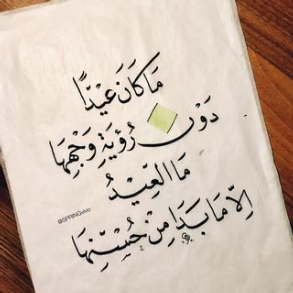 مَا كَانَ عِيْدًا
دَوْنَ رُؤيَةِ وَجْهِهَا
مَا العِيْدُ
اِلّا مَا بَدَا مِنْ حُسْنِهَا